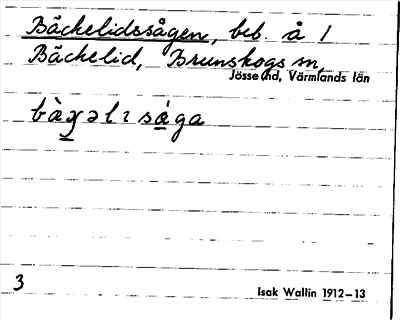 Bäckelidssågen, beb. å 1
Bäckelid, Brunskogs sn,
Jösse hd, Värmlands län
bàχəlı såga
3
Isak Wallin 1912–13